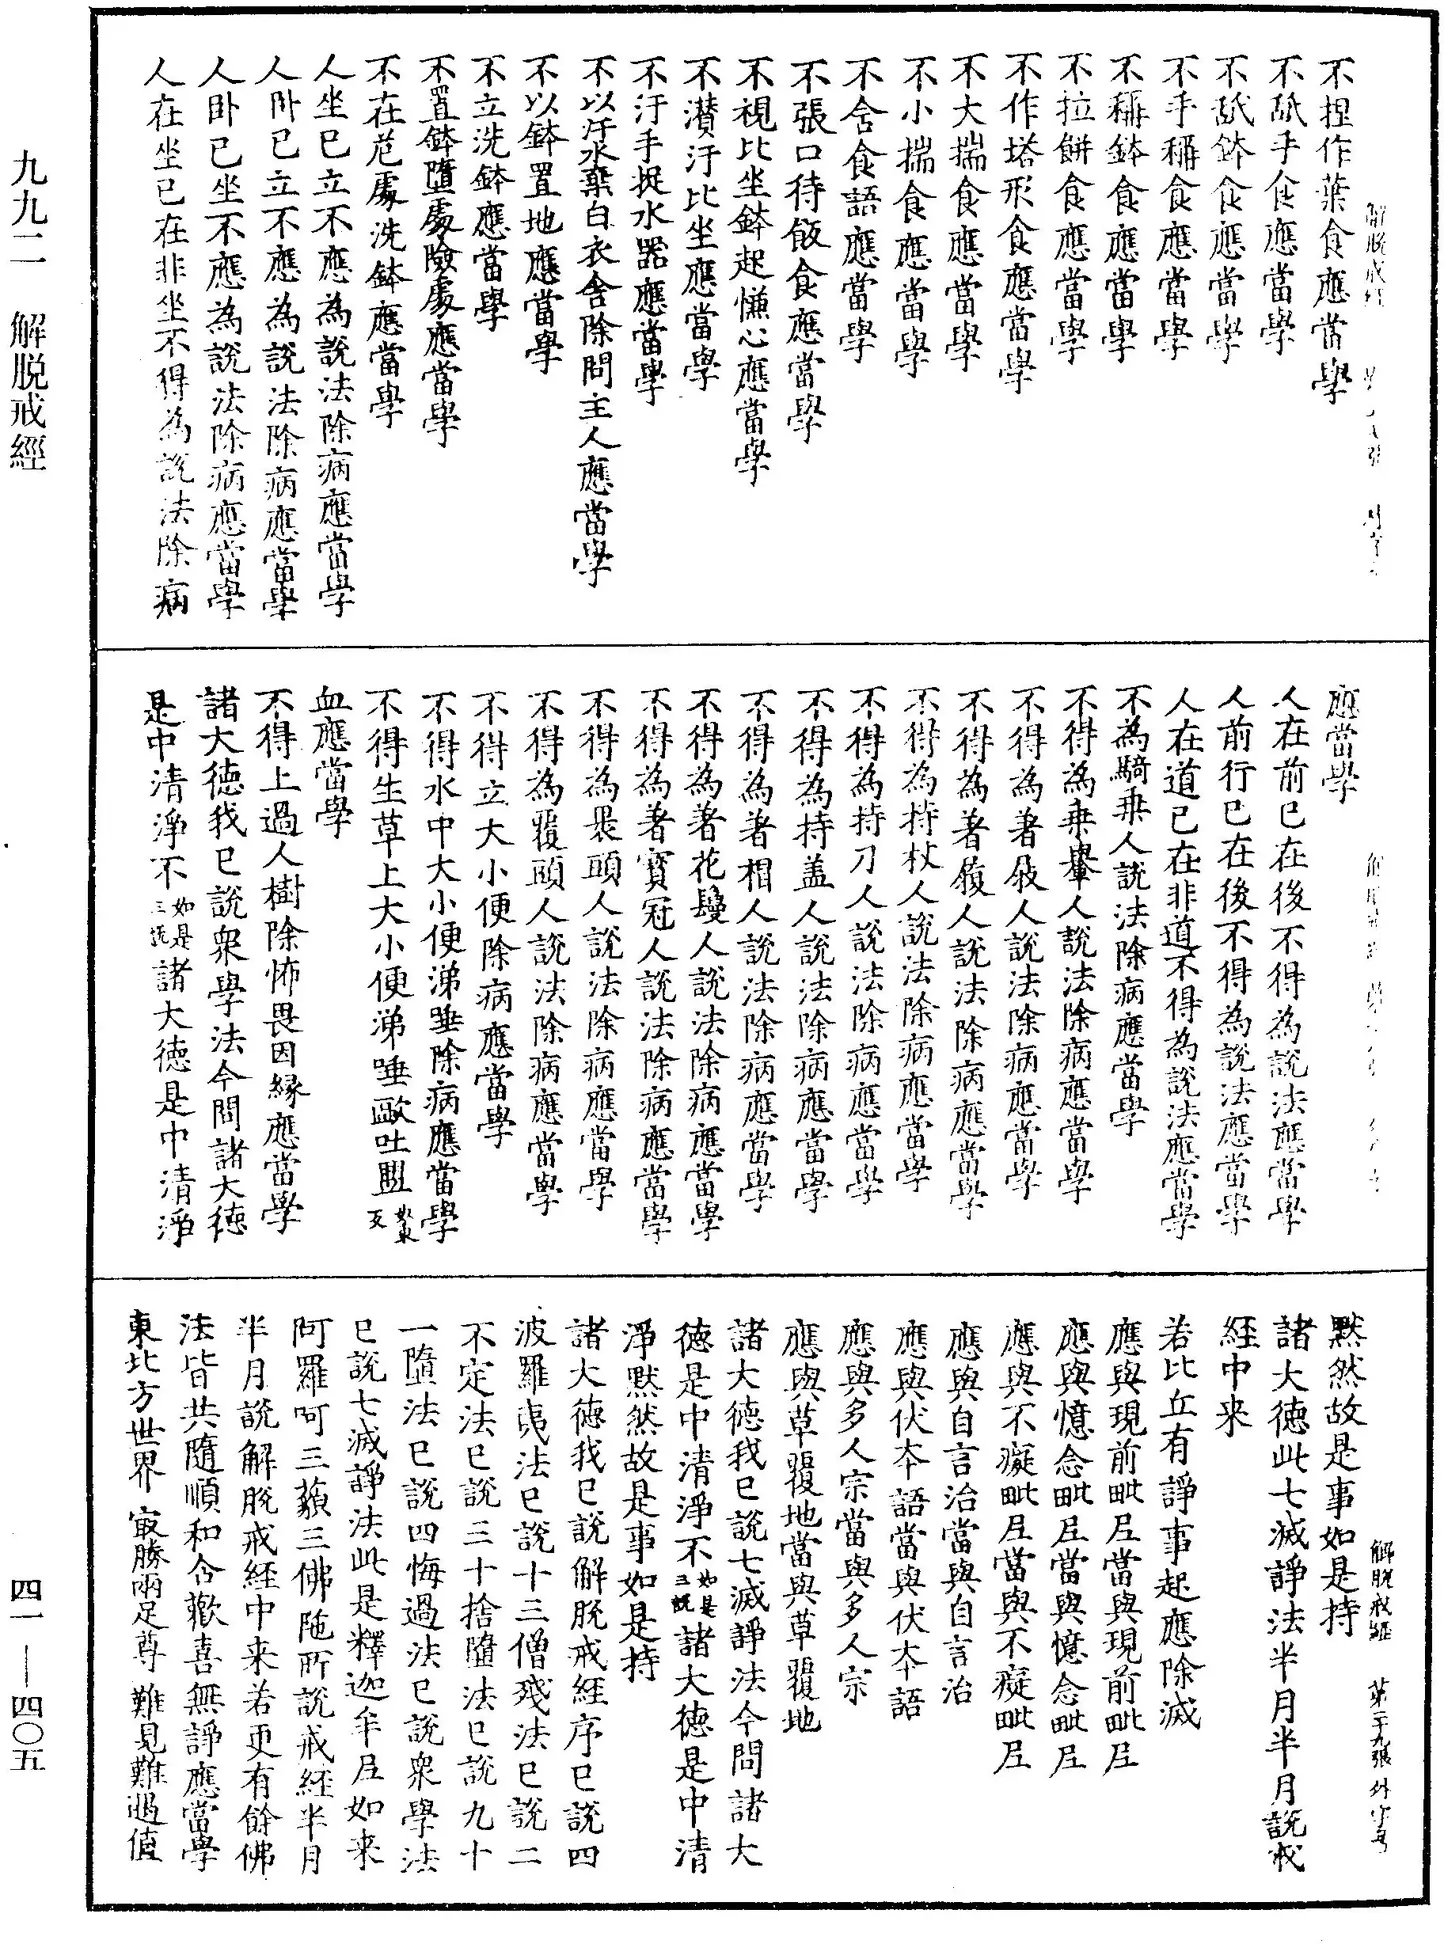 九九二　解脱戒經
不捏作葉食應當學
不舐手食應當學
不舐鉢食應當學
不手稱食應當學
不稱鉢食應當學
不拉餅食應當學
不作塔形食應當學
不大揣食應當學
不小揣食應當學
不含食語應當學
不張口待飯食應當學
不視比坐鉢起慊心應當學
不濽汙比坐應當學
不汙手捉水器應當學
不以汙水棄白衣舍除問主人應當學
不以鉢置地應當學
不立洗鉢應當學
不置鉢墮處險處應當學
不在危處洗鉢應當學
人坐已立不應為說法除病應當學
人卧已立不應為說法除病應當學
人卧已坐不應為說法除病應當學
人在坐已在非坐不得為說法除病
應當學
人在前已在後不得為說法應當學
人前行已在後不得為說法應當學
人在道已在非道不得為說法應當學
不為騎乗人說法除病應當學
不得為乗轝人說法除病應當學
不得為著屐人說法除病應當學
不得為著履人說法除病應當學
不得為持杖人說法除病應當學
不得為持刀人說法除病應當學
不得為持盖人說法除病應當學
不得為著帽人說法除病應當學
不得為著花鬘人說法除病應當學
不得為著寶冠人說法除病應當學
不得為褁頭人說法除病應當學
不得為覆頭人說法除病應當學
不得立大小便除病應當學
不得水中大小便涕唾除病應當學
不得生草上大小便涕唾歐吐盥
血應當學
不得上過人樹除怖畏因緣應當學
諸大德我已說衆學法今問諸大德
是中清淨不如是三說諸大德是中清淨
默然故是事如是持
諸大德此七滅諍法半月半月說戒
經中来
若比丘有諍事起應除滅
應與現前毗尼當與現前毗尼
應與憶念毗尼當與憶念毗尼
應與不癡毗尼當與不癡毗尼
應與自言治當與自言治
應與伏本語當與伏本語
應與多人宗當與多人宗
應與草覆地當與草覆地
諸大德我已說七滅諍法今問諸大
德是中清淨不如是三說諸大德是中清
淨默然故是事如是持
諸大德我已說解脫戒經序已說四
波羅夷法已說十三僧殘法已說二
不定法已說三十捨墮法已說九十
一墮法已說四悔過法已說衆學法
已說七滅諍法此是釋迦牟尼如来
阿羅呵三藐三佛陁所說戒經半月
半月說解脫戒經中来若更有餘佛
法皆共隨順和合歡喜無諍應當學
東北方世界　㝡勝兩足尊　難見難過值
解脫戒經　第二十九張
四一—四〇五